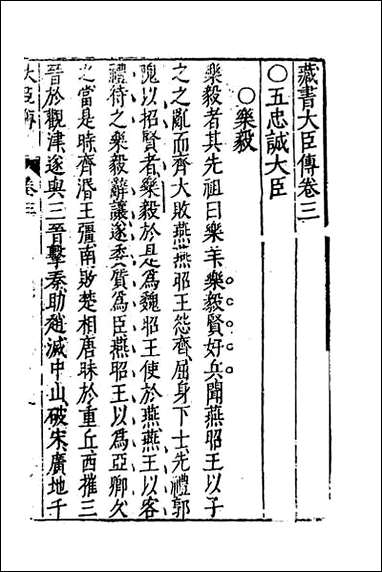 藏書大臣傳卷三
〇五忠誠大臣
〇樂毅
樂毅者其先祖曰樂羊樂毅賢好兵聞燕昭王以子
之之亂而齊大敗燕燕昭王怨齊屈身下士先禮郭
隗以招賢者樂毅於是為魏昭王使於燕燕王以客
禮待之樂毅辭讓遂委質為臣燕昭王以為亞卿久
之當是時齊湣王彊南敗楚相唐昧於重丘西摧三
晉於觀津遂與三晉擊秦助趙滅中山破宋廣地千
大臣傳
卷三